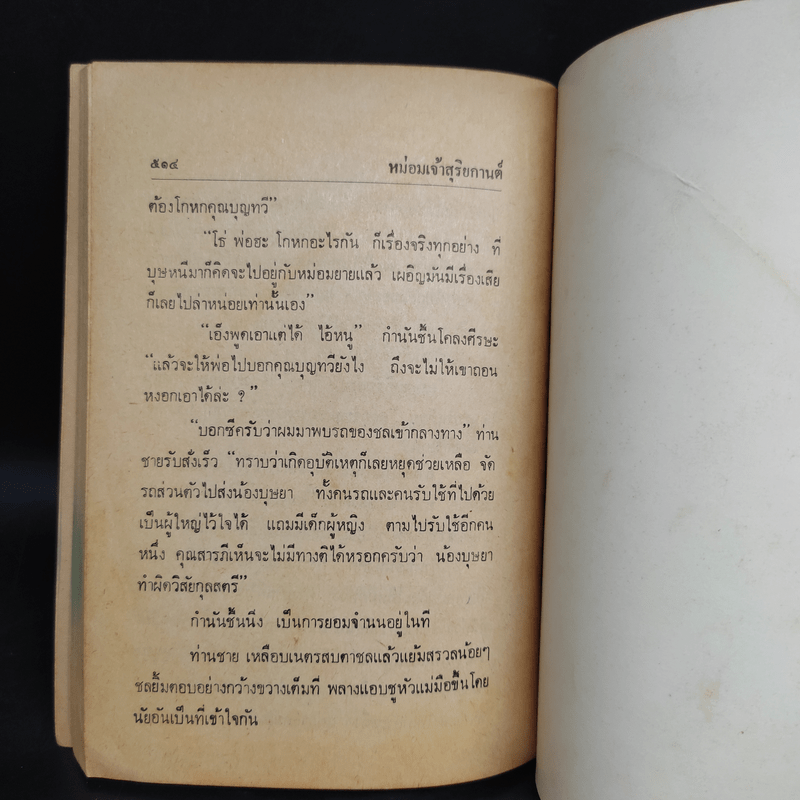 ๕๑๔ หม่อมเจ้าสุริยกานต์
ต้องโกหกคุณบุญทวี”
“โธ่ พ่อฮะ โกหกอะไรกัน ก็เรื่องจริงทุกอย่าง ที่
บุษหนีมาก็คิดจะไปอยู่กับหม่อมยายแล้ว เผอิญมันมีเรื่องเสีย
ก็เลยไปล่าหน่อยเท่านั้นเอง”
“เอ็งพูดเอาแต่ได้ ไอ้หนู” กำนันชื้นโคลงศีรษะ
“แล้วจะให้พ่อไปบอกคุณบุญทวียังไง ถึงจะไม่ให้เขาถอน
หงอกเอาได้ล่ะ ?”
“บอกซีครับว่าผมมาพบรถของชลเข้ากลางทาง” ท่าน
ชายรับสั่งเร็ว “ทราบว่าเกิดอุบัติเหตุก็เลยหยุดช่วยเหลือ จัด
รถส่วนตัวไปส่งน้องบุษยา ทั้งคนรถและคนรับใช้ที่ไปด้วย
เป็นผู้ใหญ่ไว้ใจได้ แถมมีเด็กผู้หญิง ตามไปรับใช้อีกคน
หนึ่ง คุณสารภีเห็นจะไม่มีทางติได้หรอกครับว่า น้องบุษยา
ทำผิดวิสัยกุลสตรี”
กำนันชื้นนิ่ง เป็นการยอมจำนนอยู่ในที
ท่านชาย เหลือบเนตรสบตาชลแล้วแย้มสรวลน้อยๆ
ชลยิ้มตอบอย่างกว้างขวางเต็มที่ พลางแอบชูหัวแม่มือขึ้นโดย
นัยอันเป็นที่เข้าใจกัน